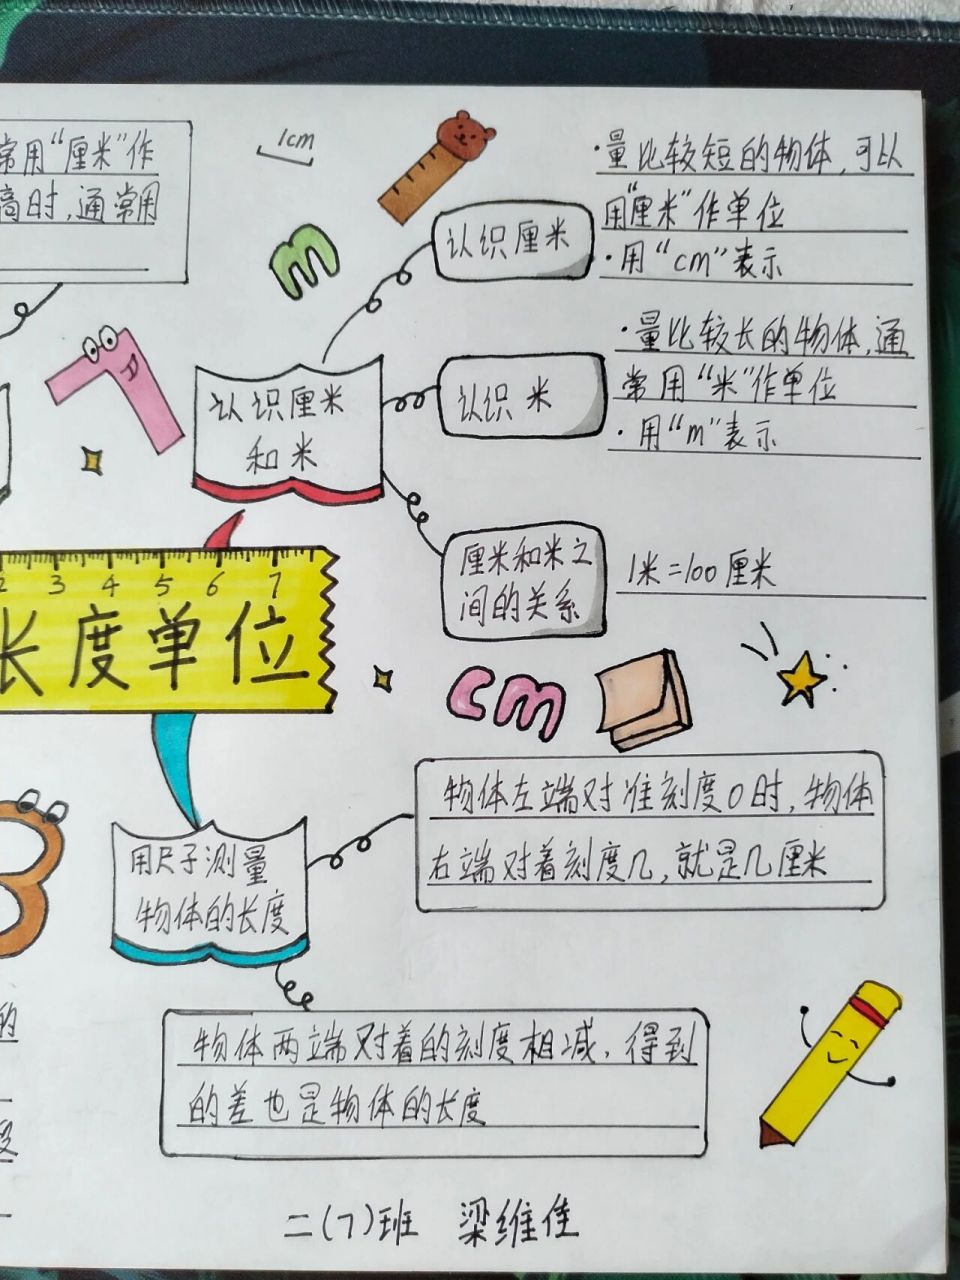 常用“厘米”作
高时,通常用
1cm
m
认识厘米
·量比较短的物体,可以
用“厘米”作单位
·用“cm”表示
认识厘米
和米
认识 米
·量比较长的物体,通
常用“米”作单位
·用“m”表示
厘米和米之
间的关系
1米=100厘米
2 3 4 5 6 7
长度单位
cm
用尺子测量
物体的长度
物体左端对准刻度0时,物体
右端对着刻度几,就是几厘米
的
物体两端对着的刻度相减,得到
的差也是物体的长度
二(7)班 梁维佳